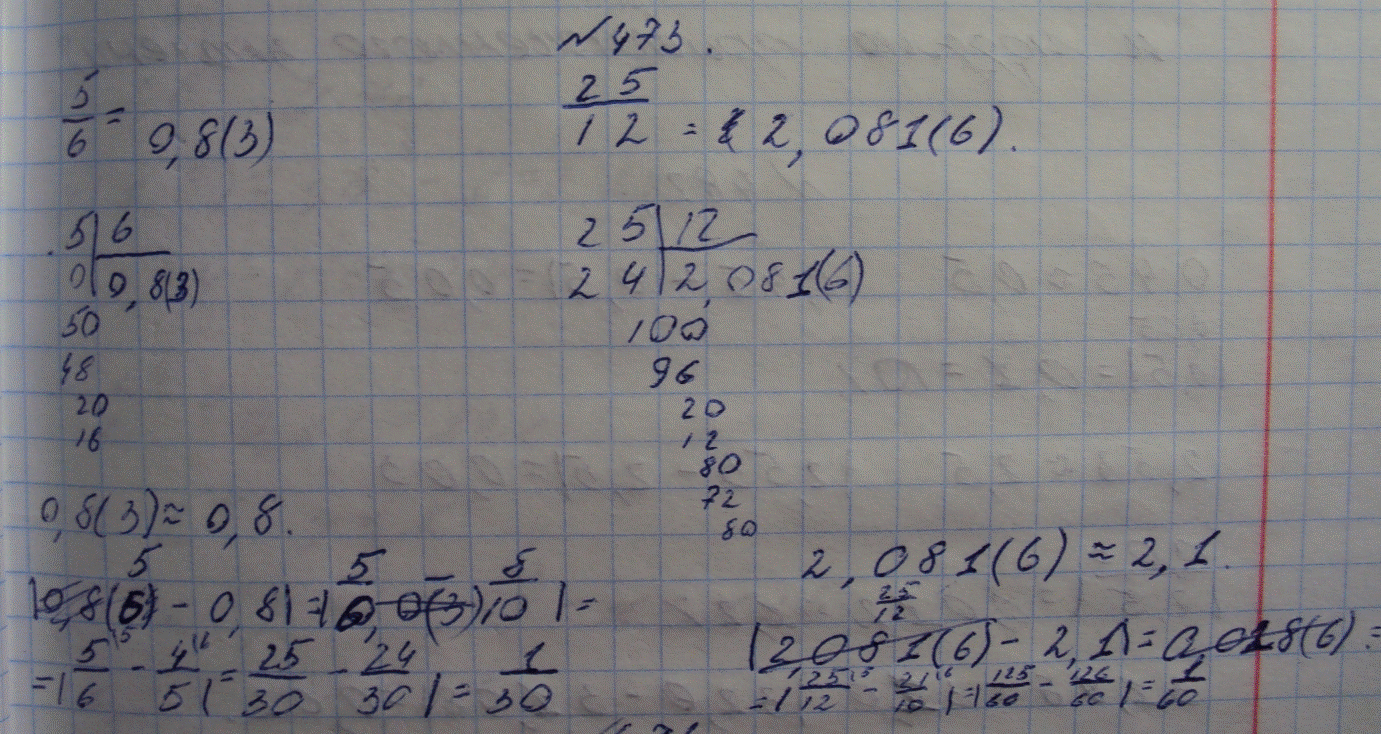 №473.
5/6 = 0,8(3)
25/12 = 2,081(6).
5 | 6
0 | 0,8(3)
50
48
20
16
25 | 12
24 | 2,081(6)
100
96
20
12
80
72
80
0,8(3) ≈ 0,8.
|5/6 - 0,8| = |5/6 - 8/10| =
= |5/6 - 4/5| = 25/30 - 24/30| = 1/30
2,081(6) ≈ 2,1.
|25/12 - 2,1| =
= |25/12 - 21/10| = |125/60 - 126/60| = 1/60